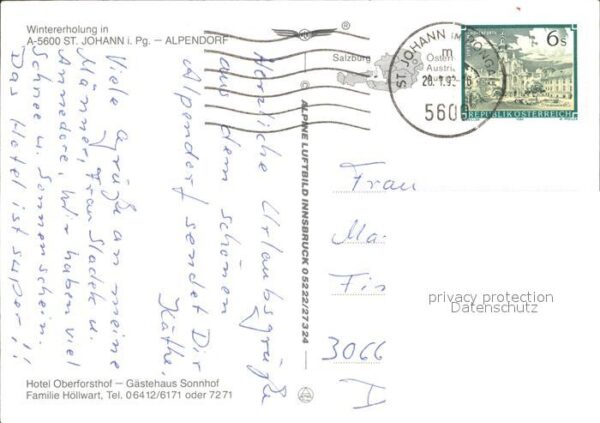 Wintererholung in
A-5600 ST. JOHANN i. Pg. — ALPENDORF
Herzliche Urlaubsgrüße
aus dem schönen
Alpendorf sendet Dir
Käthe.
Viele Grüße an meine
Männer, Frau Sladek u.
Annedore, Wir haben viel
Schnee u. Sonnenschein.
Das Hotel ist super!!
Hotel Oberforsthof — Gästehaus Sonnhof
Familie Höllwart, Tel. 06412/6171 oder 7271
© ALPINE LUFTBILD INNSBRUCK 05222/27324
®
Salzburg
ST. JOHANN IM PONGAU
m
5600
6s
REPUBLIK ÖSTERREICH
Frau
Ma
Fis
3066
A
privacy protection
Datenschutz